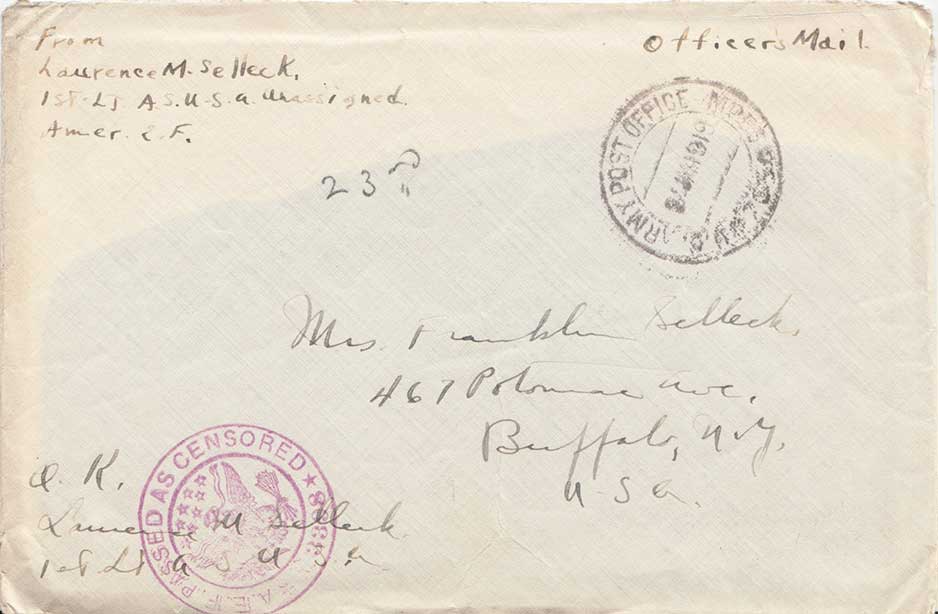 From
Laurence M. Selleck,
1st Lt A S. U-S. a. Unassigned.
Amer. E. F.
Officer's Mail.
ARMY POST OFFICE
1919
23
Mrs. Franklin Selleck,
467 Potomac Ave.
Buffalo, N.Y.
U-S a.
PASSED AS CENSORED
A.E.F.
O. K.
Laurence M Selleck.
1st Lt A S U S. a.